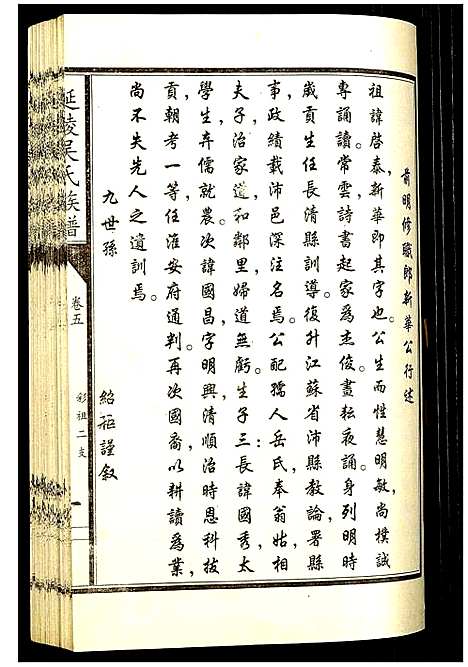 前明修職郎新華公行述
祖諱啓泰，新華即其字也。公生而性慧明敏，尚樸誠
專誦讀。常雲詩書起家爲圭俊。晝耘夜誦，身列明時
歲貢生任長清縣訓導。復升江蘇省沛縣教諭，署縣
事，政績載沛邑深注名焉。公配孺人岳氏，奉翁姑，相
夫子，治家道，和鄰里婦道無虧。生子三：長諱國秀，太
學生，弃儒就農。次諱國昌，字明興，清順治時恩科拔
貢，朝考一等任淮安府通判。再次國裔，以耕讀爲業，
尚不失先人之遺訓焉。
九世孫
紹䄂謹叙
延陵吴氏族譜
卷五
彩祖二支
一